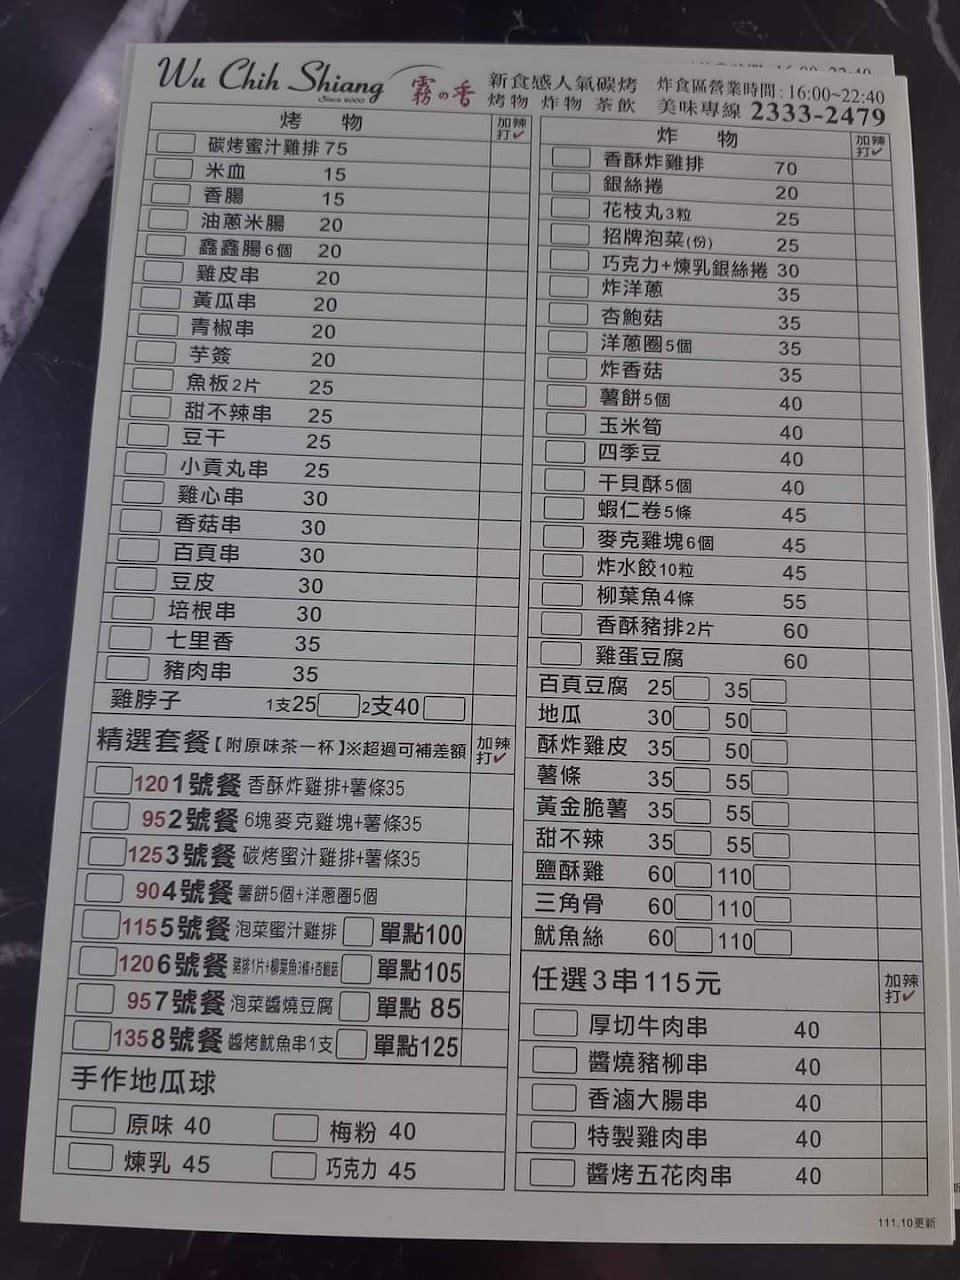 Wu Chih Shiang
Since 2000
霧の香
新食感人氣碳烤
烤物 炸物 茶飲
炸食區營業時間:16:00~22:40
美味專線 2333-2479
烤 物 加辣打✓
碳烤蜜汁雞排 75
米血 15
香腸 15
油蔥米腸 20
鑫鑫腸6個 20
雞皮串 20
黃瓜串 20
青椒串 20
芋簽 20
魚板2片 25
甜不辣串 25
豆干 25
小貢丸串 25
雞心串 30
香菇串 30
百頁串 30
豆皮 30
培根串 30
七里香 35
豬肉串 35
雞脖子 1支25 2支40
精選套餐【附原味茶一杯】※超過可補差額 加辣打✓
120 1號餐 香酥炸雞排+薯條35
95 2號餐 6塊麥克雞塊+薯條35
125 3號餐 碳烤蜜汁雞排+薯條35
90 4號餐 薯餅5個+洋蔥圈5個
115 5號餐 泡菜蜜汁雞排 單點100
120 6號餐 豬排1片+柳葉魚3條+杏鮑菇 單點105
95 7號餐 泡菜醬燒豆腐 單點 85
135 8號餐 醬烤魷魚串1支 單點125
手作地瓜球
原味 40 梅粉 40
煉乳 45 巧克力 45
炸 物 加辣打✓
香酥炸雞排 70
銀絲捲 20
花枝丸3粒 25
招牌泡菜(份) 25
巧克力+煉乳銀絲捲 30
炸洋蔥 35
杏鮑菇 35
洋蔥圈5個 35
炸香菇 35
薯餅5個 40
玉米筍 40
四季豆 40
干貝酥5個 40
蝦仁卷5條 45
麥克雞塊6個 45
炸水餃10粒 45
柳葉魚4條 55
香酥豬排2片 60
雞蛋豆腐 60
百頁豆腐 25 35
地瓜 30 50
酥炸雞皮 35 50
薯條 35 55
黃金脆薯 35 55
甜不辣 35 55
鹽酥雞 60 110
三角骨 60 110
魷魚絲 60 110
任選3串115元 加辣打✓
厚切牛肉串 40
醬燒豬柳串 40
香滷大腸串 40
特製雞肉串 40
醬烤五花肉串 40
111.10更新